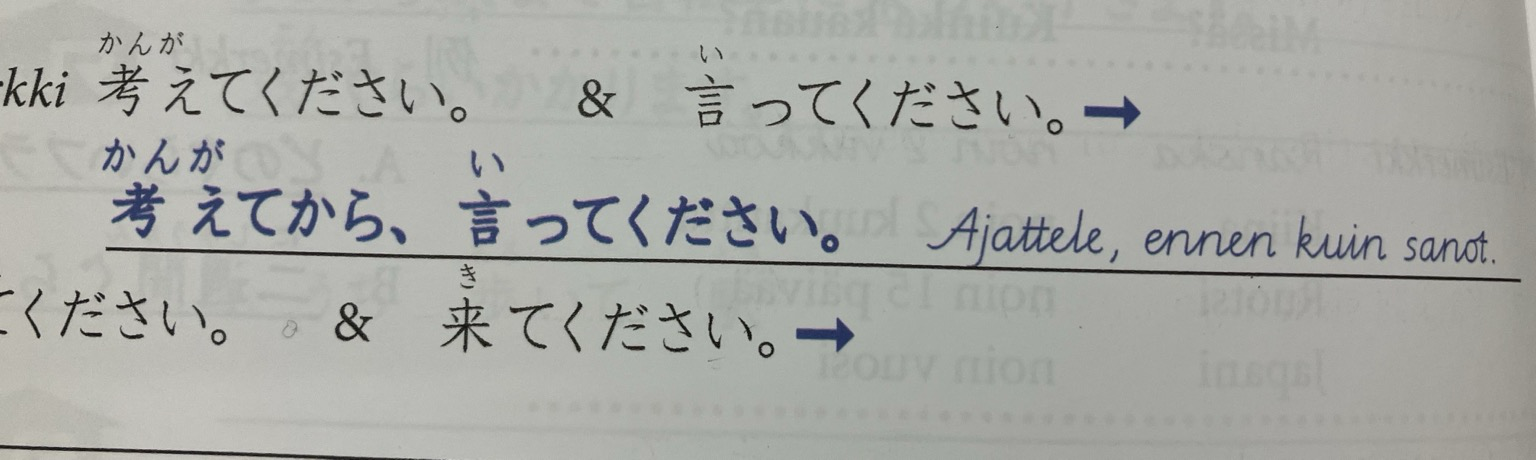 かんが い
kki 考えてください。 & 言ってください。➞
かんが い
考えてから、言ってください。 Ajattele, ennen kuin sanot.
き
てください。 & 来てください。➞